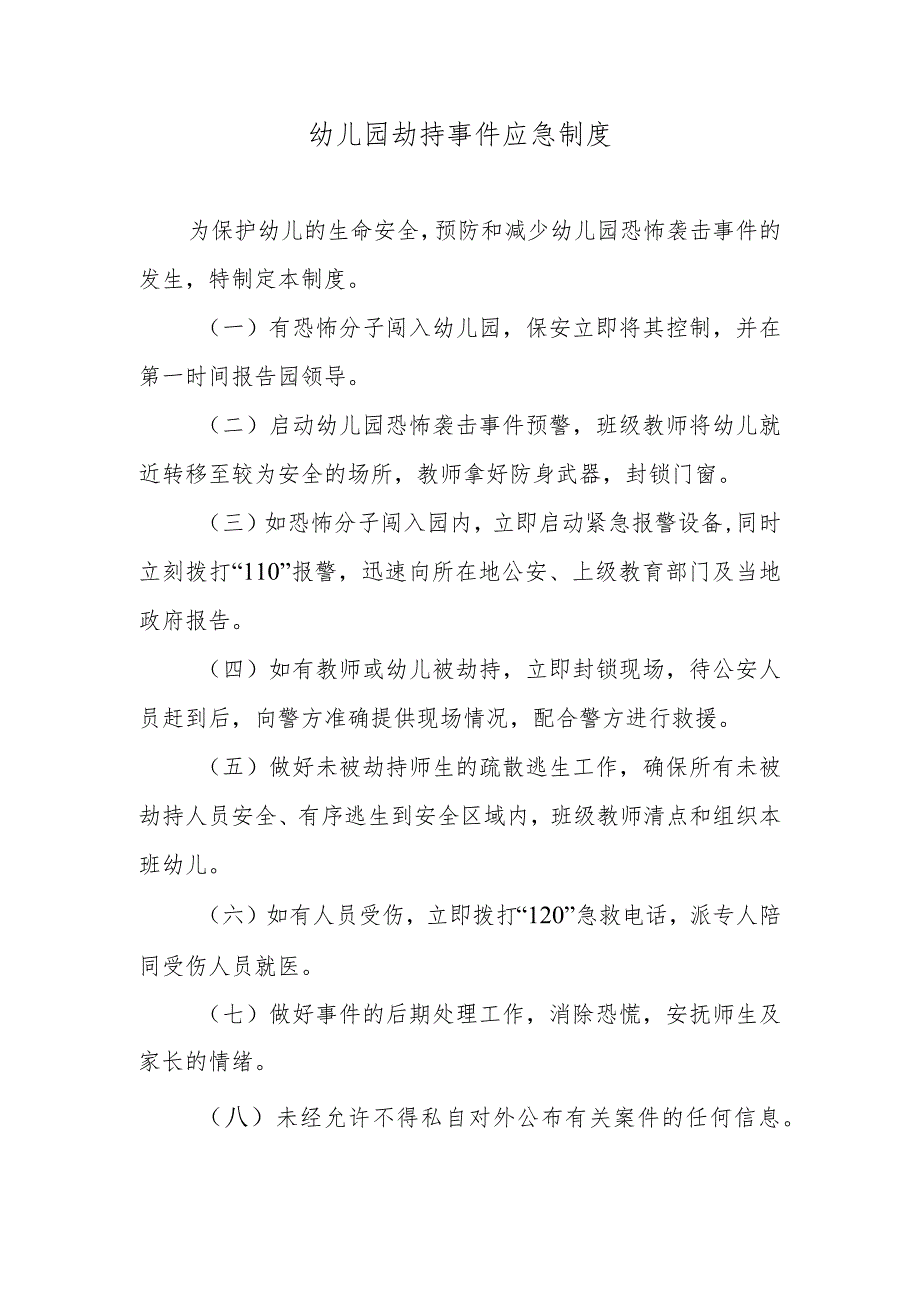 幼儿园劫持事件应急制度
为保护幼儿的生命安全,预防和减少幼儿园恐怖袭击事件的
发生，特制定本制度。
（一）有恐怖分子闯入幼儿园，保安立即将其控制，并在
第一时间报告园领导。
（二）启动幼儿园恐怖袭击事件预警，班级教师将幼儿就
近转移至较为安全的场所，教师拿好防身武器，封锁门窗。
（三）如恐怖分子闯入园内，立即启动紧急报警设备,同时
立刻拨打“110”报警，迅速向所在地公安、上级教育部门及当地
政府报告。
（四）如有教师或幼儿被劫持，立即封锁现场，待公安人
员赶到后，向警方准确提供现场情况，配合警方进行救援。
（五）做好未被劫持师生的疏散逃生工作，确保所有未被
劫持人员安全、有序逃生到安全区域内，班级教师清点和组织本
班幼儿。
（六）如有人员受伤，立即拨打“120”急救电话，派专人陪
同受伤人员就医。
（七）做好事件的后期处理工作，消除恐慌，安抚师生及
家长的情绪。
（八）未经允许不得私自对外公布有关案件的任何信息。